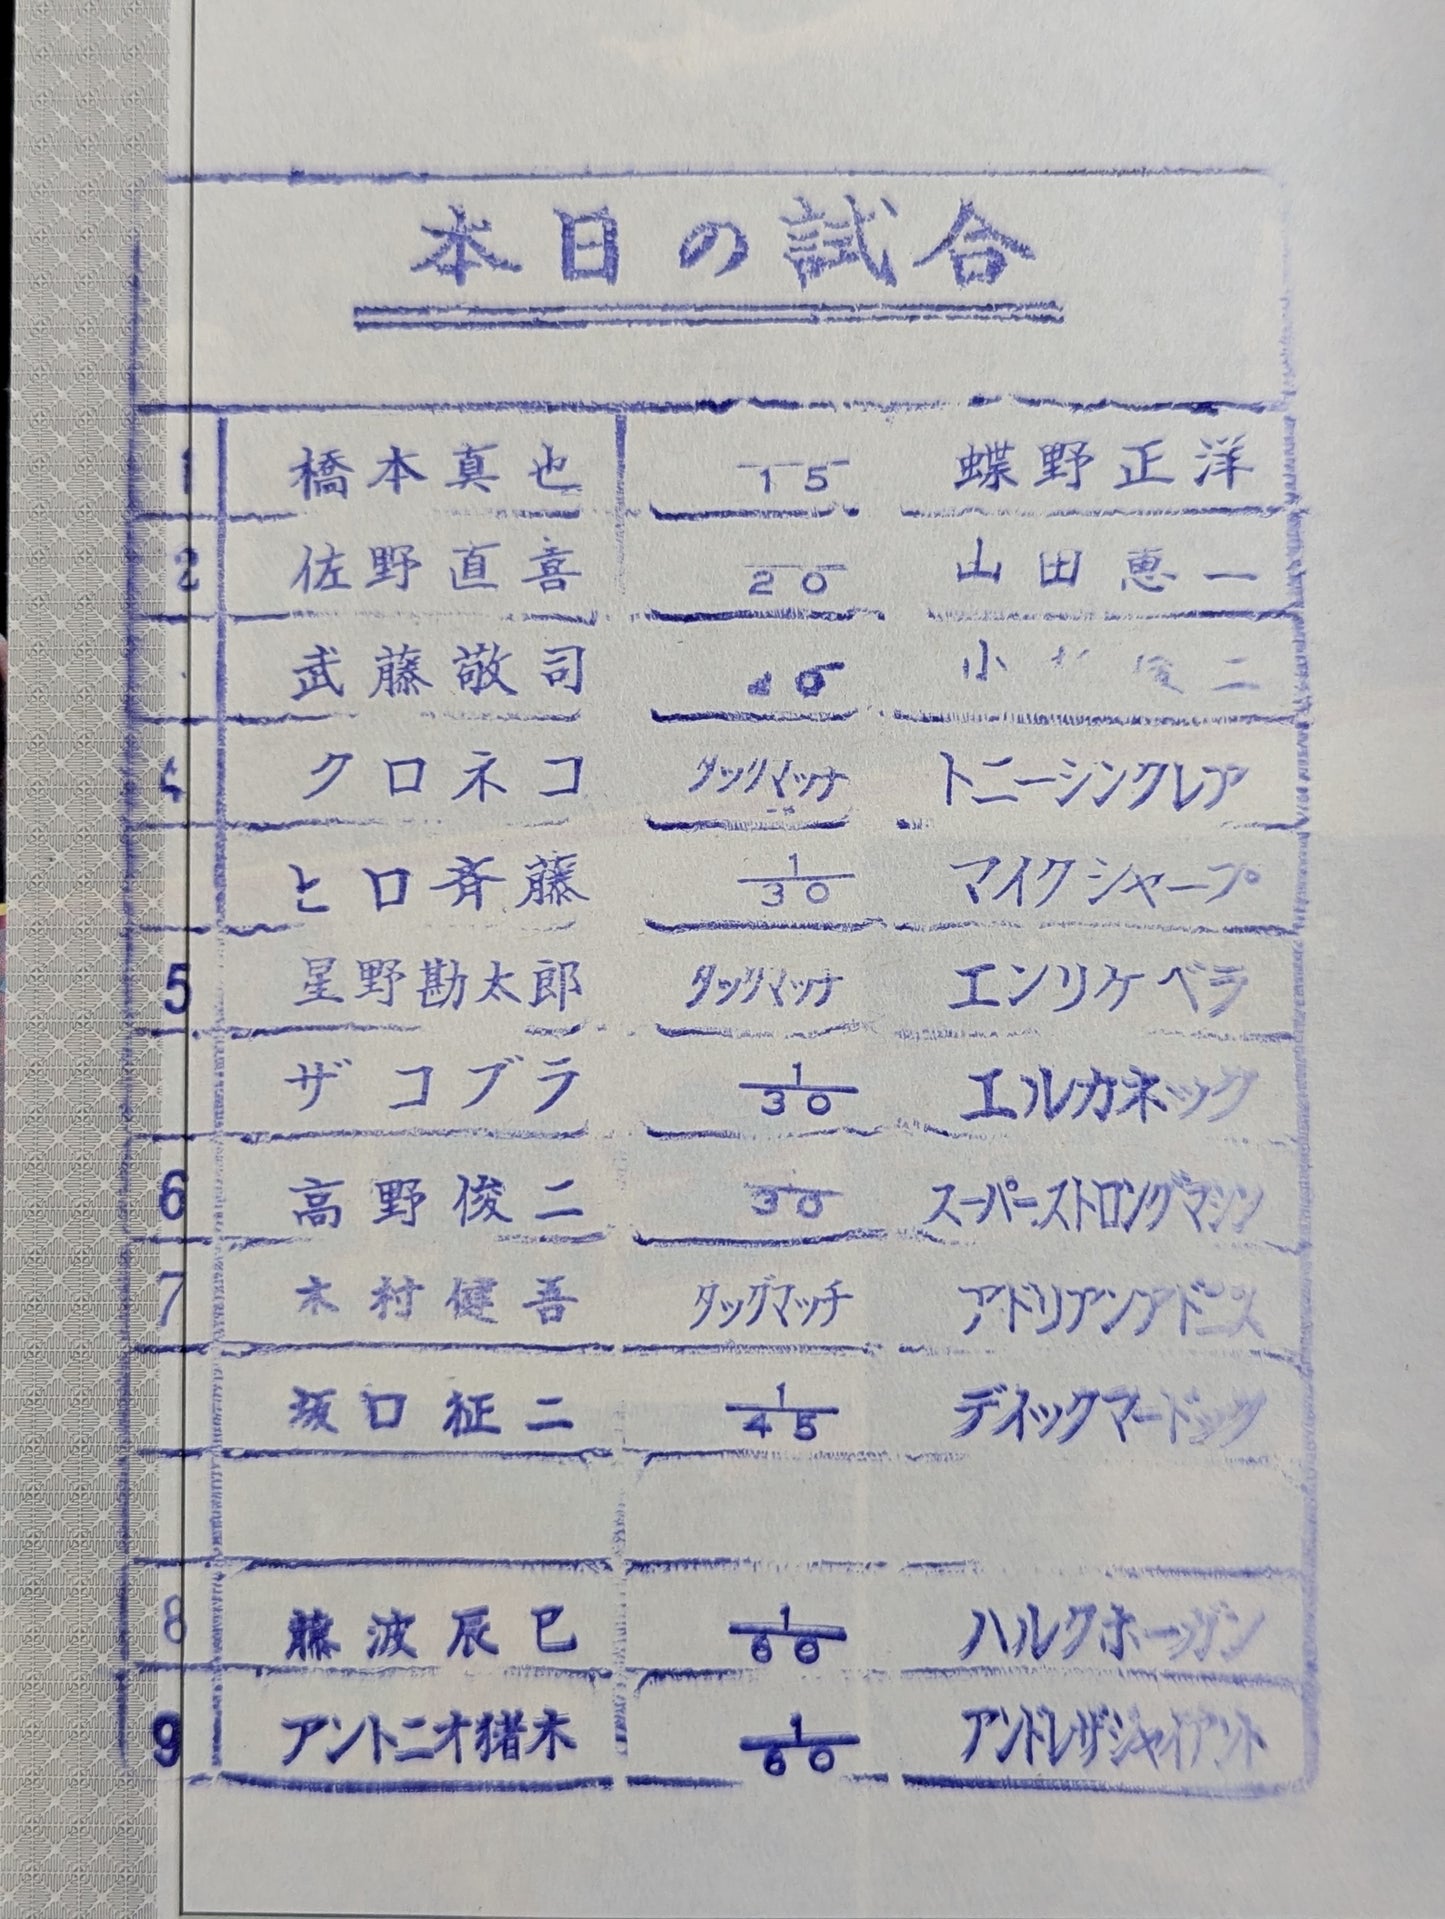 本日の試合
1 橋本真也 15 蝶野正洋
2 佐野直喜 20 山田恵一
武藤敬司 小 二
4 クロネコ タッグマッチ トニーシンクレア
ヒロ斉藤 1/30 マイクシャープ
5 星野勘太郎 タッグマッチ エンリケベラ
ザコブラ 1/30 エルカネック
6 高野俊二 30 スーパーストロングマシン
7 木村健吾 タッグマッチ アドリアンアドニス
坂口征二 1/45 ディックマードック
8 藤波辰巳 1/60 ハルクホーガン
9 アントニオ猪木 1/60 アンドレザジャイアント